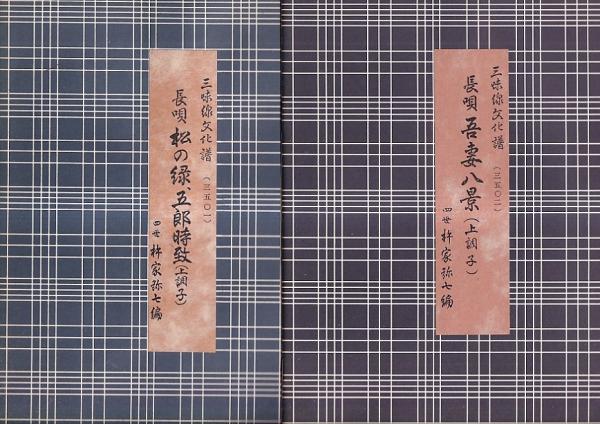 三味線文化譜(三五〇一)
長唄 松の緑、五郎時致(上調子)
四世 杵家弥七編
三味線文化譜(三五〇二)
長唄 吾妻八景(上調子)
四世 杵家弥七編